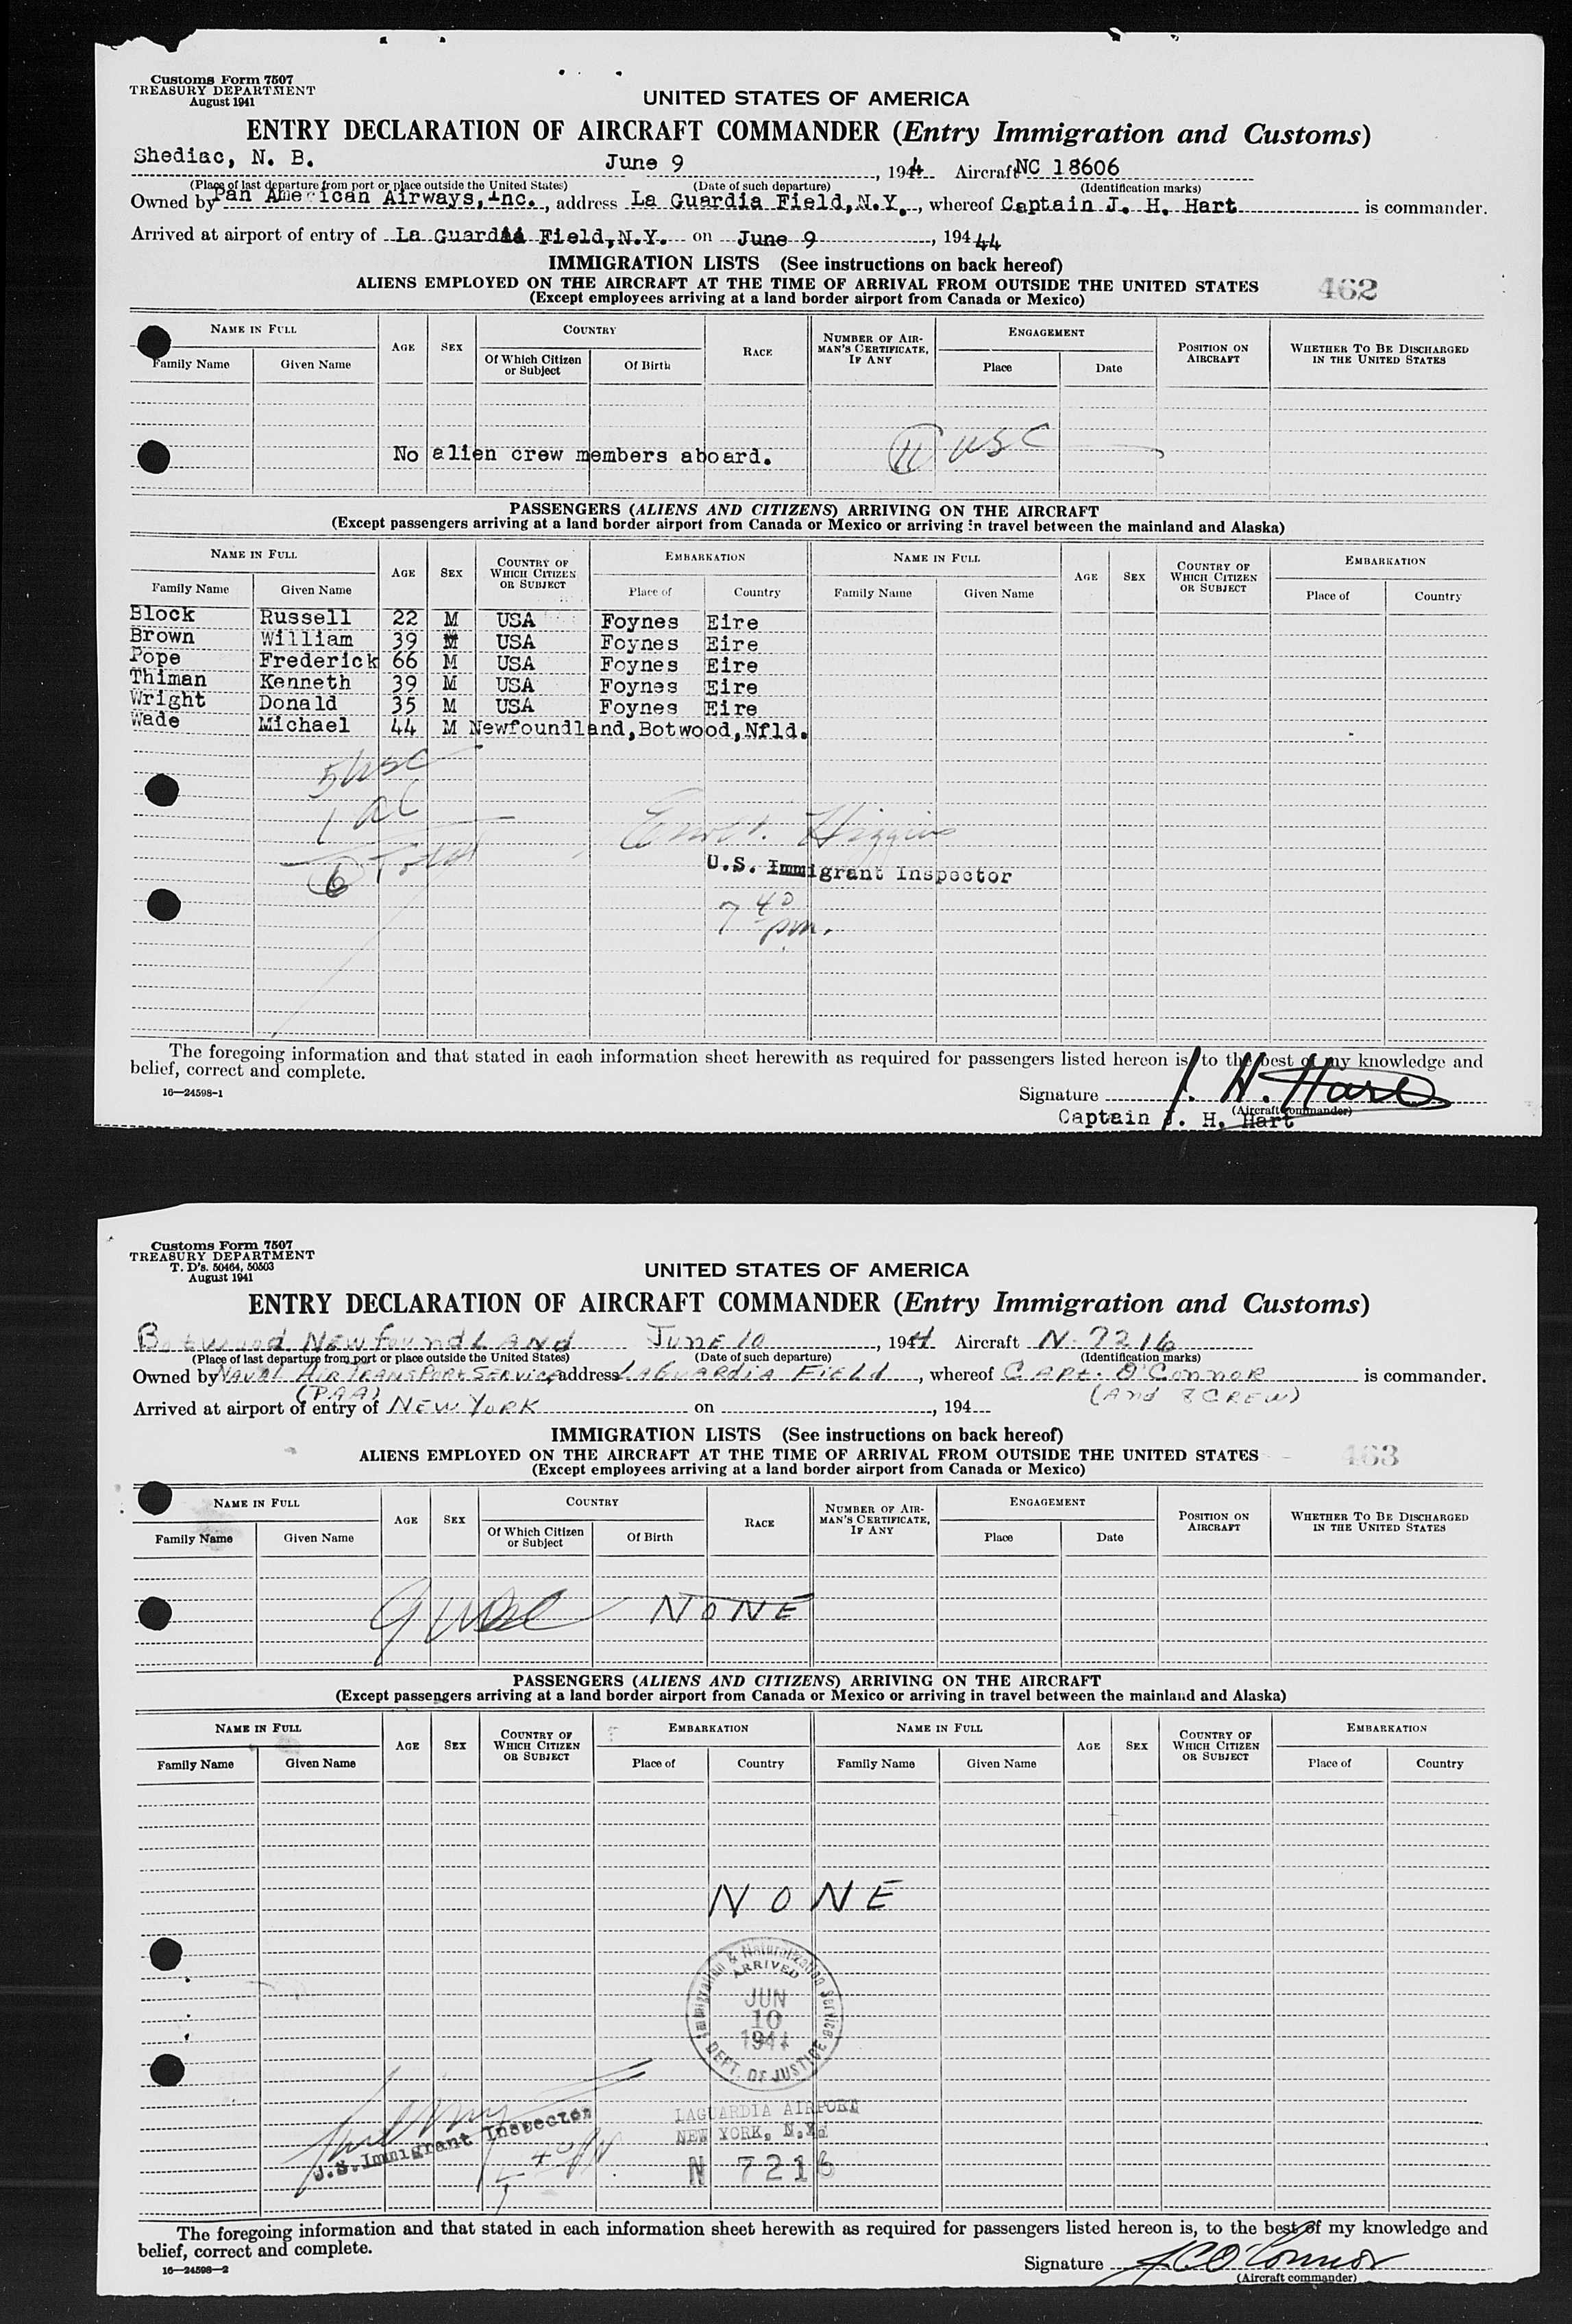 Customs Form 7507
TREASURY DEPARTMENT
August 1941
UNITED STATES OF AMERICA
ENTRY DECLARATION OF AIRCRAFT COMMANDER (Entry Immigration and Customs)
Shediac, N. B. June 9, 1944 Aircraft NC 18606
(Place of last departure from port or place outside the United States) (Date of such departure) (Identification marks)
Owned by Pan American Airways, Inc., address La Guardia Field, N.Y., whereof Captain J. H. Hart is commander.
Arrived at airport of entry of La Guardia Field, N.Y. on June 9, 194 44
IMMIGRATION LISTS (See instructions on back hereof)
ALIENS EMPLOYED ON THE AIRCRAFT AT THE TIME OF ARRIVAL FROM OUTSIDE THE UNITED STATES 462
(Except employees arriving at a land border airport from Canada or Mexico)
NAME IN FULL AGE SEX COUNTRY RACE NUMBER OF AIRMAN'S CERTIFICATE, IF ANY ENGAGEMENT POSITION ON AIRCRAFT WHETHER TO BE DISCHARGED IN THE UNITED STATES
Family Name Given Name Of Which Citizen or Subject Of Birth Place Date
No alien crew members aboard. 11 USC
PASSENGERS (ALIENS AND CITIZENS) ARRIVING ON THE AIRCRAFT
(Except passengers arriving at a land border airport from Canada or Mexico or arriving in travel between the mainland and Alaska)
NAME IN FULL AGE SEX COUNTRY OF WHICH CITIZEN OR SUBJECT EMBARKATION NAME IN FULL AGE SEX COUNTRY OF WHICH CITIZEN OR SUBJECT EMBARKATION
Family Name Given Name Place of Country Family Name Given Name Place of Country
Block Russell 22 M USA Foynes Eire
Brown William 39 M USA Foynes Eire
Pope Frederick 66 M USA Foynes Eire
Thiman Kenneth 39 M USA Foynes Eire
Wright Donald 35 M USA Foynes Eire
Wade Michael 44 M Newfoundland, Botwood, Nfld.
5 USC
1 al
6 Total
Higgins
U.S. Immigrant Inspector
7 40 pm.
The foregoing information and that stated in each information sheet herewith as required for passengers listed hereon is, to the best of my knowledge and
belief, correct and complete.
16—24598-1
Signature J. H. Hart
(Aircraft commander)
Captain J. H. Hart
Customs Form 7507
TREASURY DEPARTMENT
T. D's. 50464, 50503
August 1941
UNITED STATES OF AMERICA
ENTRY DECLARATION OF AIRCRAFT COMMANDER (Entry Immigration and Customs)
Botwood Newfoundland June 10, 1944 Aircraft N-7216
(Place of last departure from port or place outside the United States) (Date of such departure) (Identification marks)
Owned by Naval Air Transport Service, address LaGuardia Field, whereof Capt. O'Connor is commander.
(PAA) (And 8 Crew)
Arrived at airport of entry of New York on , 194
IMMIGRATION LISTS (See instructions on back hereof)
ALIENS EMPLOYED ON THE AIRCRAFT AT THE TIME OF ARRIVAL FROM OUTSIDE THE UNITED STATES 463
(Except employees arriving at a land border airport from Canada or Mexico)
NAME IN FULL AGE SEX COUNTRY RACE NUMBER OF AIRMAN'S CERTIFICATE, IF ANY ENGAGEMENT POSITION ON AIRCRAFT WHETHER TO BE DISCHARGED IN THE UNITED STATES
Family Name Given Name Of Which Citizen or Subject Of Birth Place Date
9 NONE
PASSENGERS (ALIENS AND CITIZENS) ARRIVING ON THE AIRCRAFT
(Except passengers arriving at a land border airport from Canada or Mexico or arriving in travel between the mainland and Alaska)
NAME IN FULL AGE SEX COUNTRY OF WHICH CITIZEN OR SUBJECT EMBARKATION NAME IN FULL AGE SEX COUNTRY OF WHICH CITIZEN OR SUBJECT EMBARKATION
Family Name Given Name Place of Country Family Name Given Name Place of Country
NONE
Immigration & Naturalization Service
ARRIVED
JUN
10
1944
DEPT. OF JUSTICE
LAGUARDIA AIRPORT
NEW YORK, N.Y.
N 7216
U.S. Immigrant Inspector
The foregoing information and that stated in each information sheet herewith as required for passengers listed hereon is, to the best of my knowledge and
belief, correct and complete.
16—24598-2
Signature J C O'Connor
(Aircraft commander)